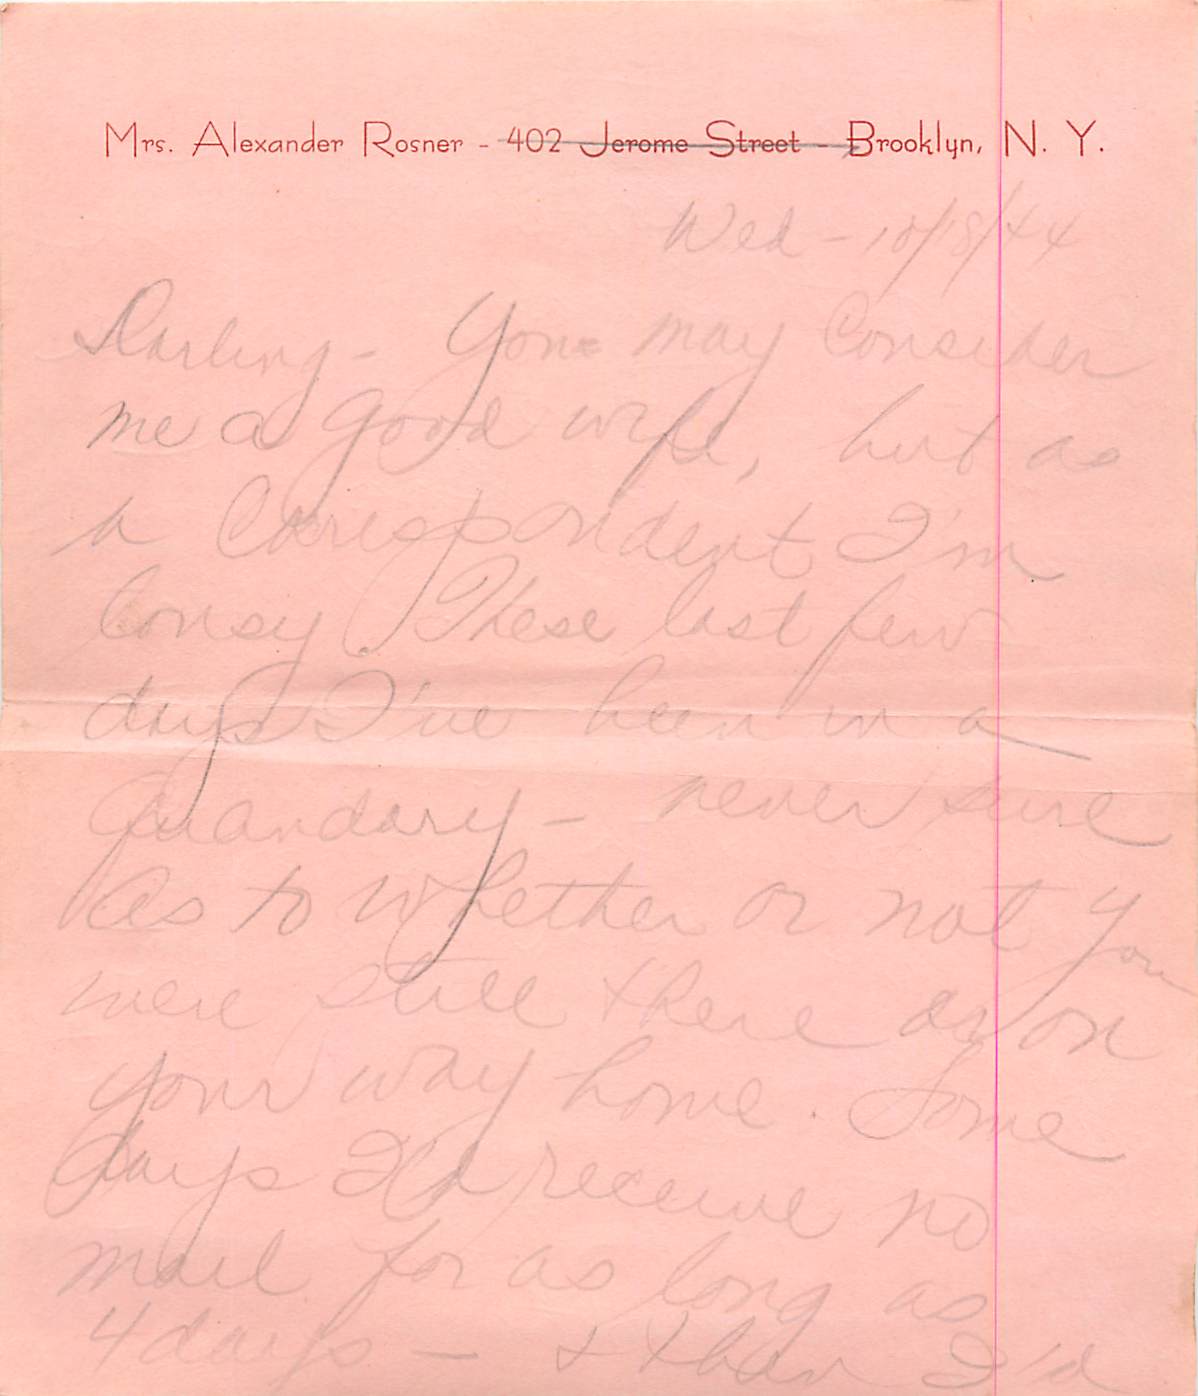 Mrs. Alexander Rosner - 402 Jerome Street - Brooklyn, N. Y.
Wed - 10/18/44
Darling - You may consider
me a good wife, but as
a Correspondent I'm
lousy. These last few
days I've been in a
quandary - never sure
as to whether or not you
were still there or on
your way home. Some
days I'd receive no
mail for as long as
4 days - & then I'd